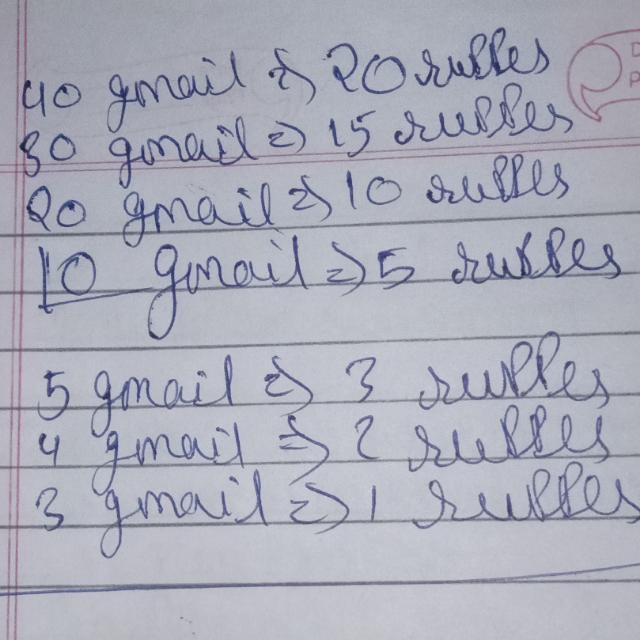 40 gmail => 20 rupees
30 gmail => 15 rupees
20 gmail => 10 rupees
10 gmail => 5 rupees
5 gmail => 3 rupees
4 gmail => 2 rupees
3 gmail => 1 rupees